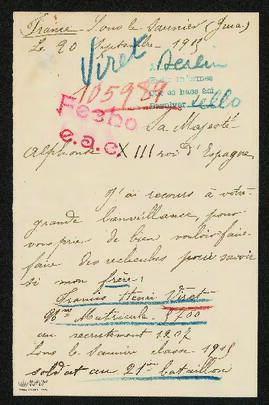 France Lons le Saunier (Jura)
Le 20 Septembre 1915
Viret
Berlin
105984
Fecho
e.a.c.
Sa Majesté
Alphonse XIII roi d'Espagne
J'ai recours à votre
grande bienveillance pour
vous prier de bien vouloir faire
faire des recherches pour savoir
si mon frère:
Francis Henri Viret
Matricule
au recrutement
Lons le Saunier classe 1915
soldat au 21ème bataillon